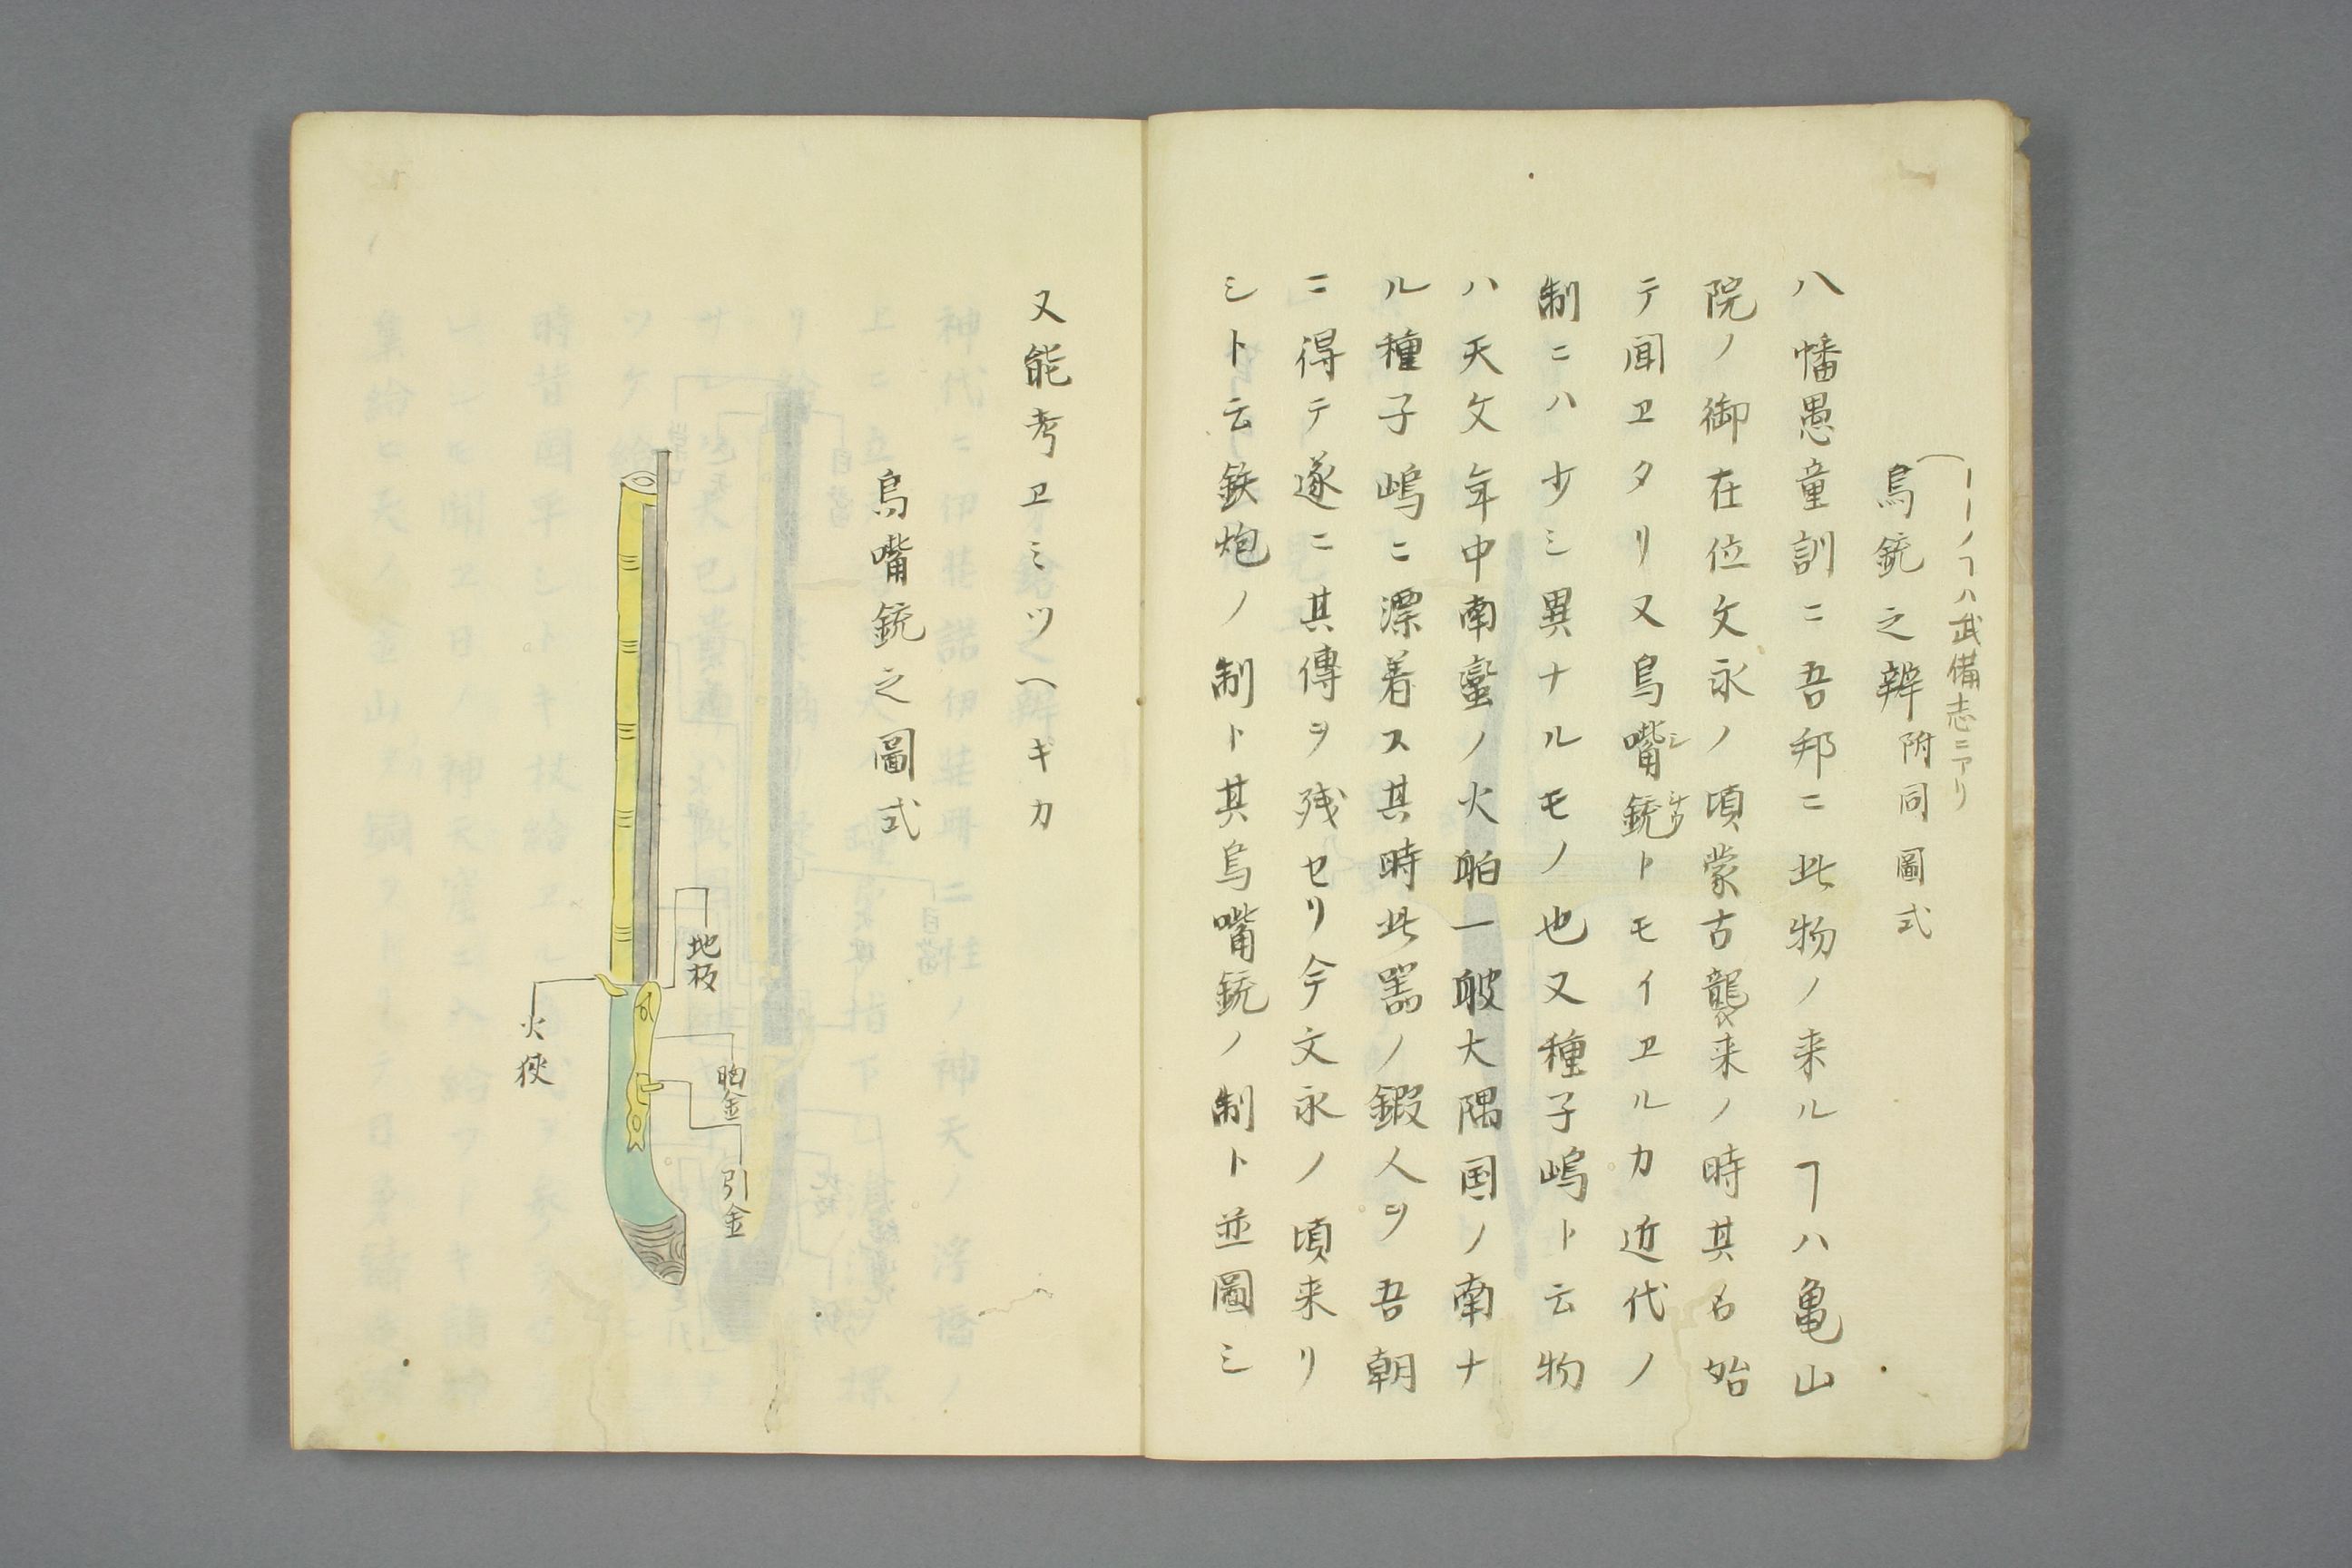 ーーノヿハ武備志ニアリ
鳥銃之辨附同圖式
八幡愚童訓ニ吾邦ニ此物ノ来ルヿハ亀山
院ノ御在位文永ノ頃蒙古襲来ノ時其名始
テ聞ヱタリ又鳥嘴銃トモイヱルカ近代ノ
制ニハ少シ異ナルモノ也又種子嶋ト云物
ハ天文年中南蛮ノ火舶一艘大隅国ノ南ナ
ル種子嶋ニ漂着ス其時此器ノ鍛人ヲ吾朝
ニ得テ遂ニ其傳ヲ残セリ今文永ノ頃来リ
シト云鉄炮ノ制ト其鳥嘴銃ノ制ト並圖シ
又能考ヱミツヘギカ
鳥嘴銃之圖式
地板
火狹
胸金
引金